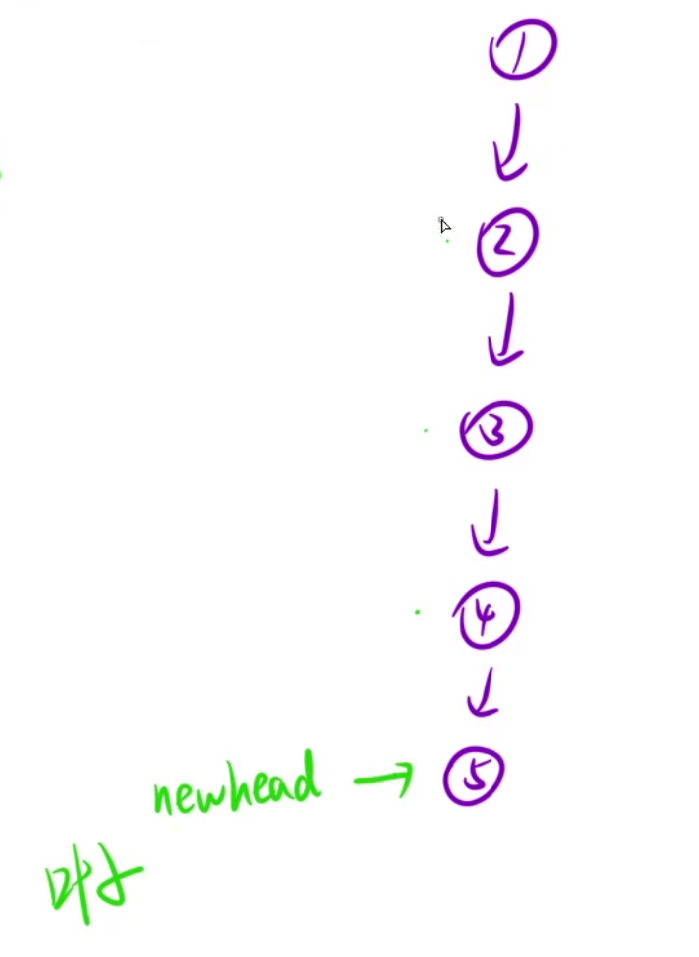 1
2
3
4
newhead → 5
叶子